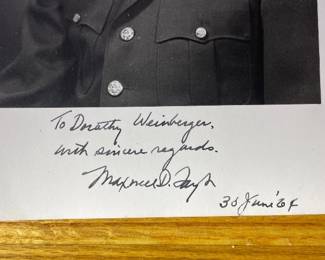 To Dorothy Weinberger,
with sincere regards.
Maxwell D. Taylor
30 June '64